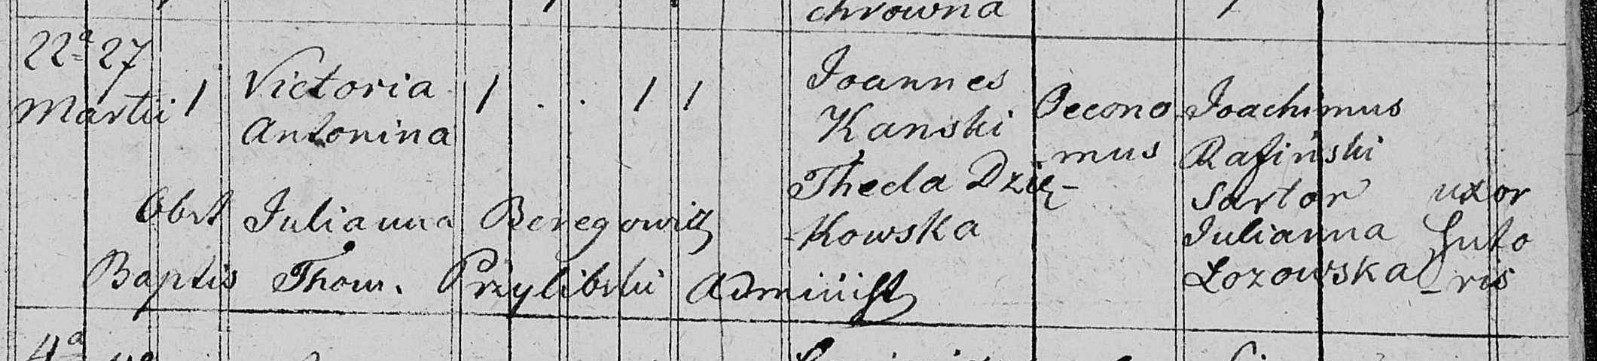 chrowna
22ª 27
Martii 1 Victoria Antonina 1 . . 1 1
Joannes
Kanski
Thecla Dzię-
kowska
Oecono
mus
Joachimus
Rafiński
Sartor
Julianna
Łozowska
uxor
Suto
ris
Obst Julianna Beregowicz
Baptis Thom. Przylibski Administ
4ª